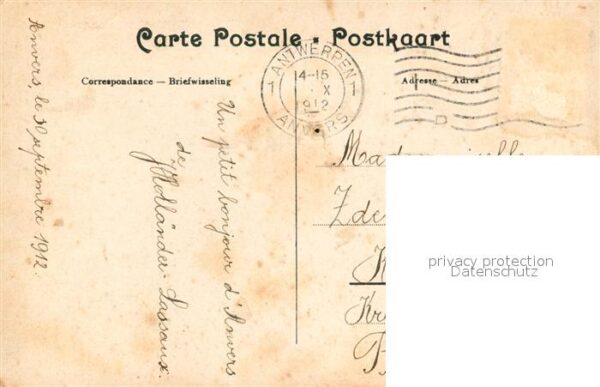 Carte Postale - Postkaart
Correspondance — Briefwisseling
Adresse — Adres
1 ANTWERPEN 1
14-15
X
912
ANVERS
D
Anvers, le 30 septembre 1912.
Un p'tit bonjour d'Anvers
de
Holländer-Lassaux.
Zde
K
Kr
privacy protection
Datenschutz